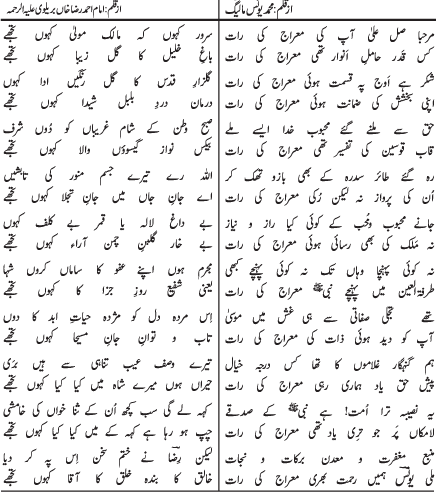 از قلم: محمد یونس مالیگ
مرحبا صل علیٰ آپ کی معراج کی رات
کس قدر حامل انوار تھی معراج کی رات
شکر ہے اوج پہ قسمت ہوئی معراج کی رات
اپنی بخشش کی ضمانت ہوئی معراج کی رات
حق سے ملنے گئے محبوب خدا ایسے ملے
قاب قوسین کی تفسیر تھی معراج کی رات
رہ گئے طائر سدرہ کے بھی بازو تھک کر
اُن کی پرواز نہ لیکن رُکی معراج کی رات
جانے محبوب و محب کے کوئی کیا راز و نیاز
نہ ملک کی بھی رسائی ہوئی معراج کی رات
نہ کوئی پہنچا وہاں تک نہ کوئی پہنچے کبھی
طرفۃ العین میں پہنچے نبیﷺ معراج کی رات
تھے تجلی صفاتی سے ہی غش میں موسیٰ
آپ کو دید ہوئی ذات کی معراج کی رات
ہم گنہگار غلاموں کا تھا کس درجہ خیال
پیش حق یاد ہماری رہی معراج کی رات
یہ نصیبہ ترا اُمت! ہے نبیﷺ کے صدقے
لامکاں پر جو تری یاد تھی معراج کی رات
منبع مغفرت و معدن برکات و نجات
ملی یونسؔ ہمیں رحمت بھری معراج کی رات
از قلم: امام احمد رضا خاں بریلوی علیہ الرحمہ
سرور کہوں کہ مالک مولیٰ کہوں تجھے
باغِ خلیل کا گل زیبا کہوں تجھے
گلزارِ قدس کا گل رنگیں ادا کہوں
درمان دردِ بلبل شیدا کہوں تجھے
صبح وطن کے شام غریباں کو دُوں شرف
بیکس نواز گیسوؤں والا کہوں تجھے
اللہ رے تیرے جسم منور کی تابشیں
اے جانِ جاں میں جانِ تجلا کہوں تجھے
بے داغ لالہ یا قمر بے کلف کہوں
بے خار گلبن چمن آراء کہوں تجھے
مجرم ہوں اپنے عفو کا ساماں کروں شہا
یعنی شفیع روزِ جزا کا کہوں تجھے
اِس مردہ دل کو مژدہ حیاتِ ابد کا دوں
تاب و توانِ جانِ مسیحا کہوں تجھے
تیرے وصف عیب تناہی سے ہیں بَری
حیراں ہوں میرے شاہ میں کیا کیا کہوں تجھے
کہہ لے گی سب کچھ اُن کے ثنا خواں کی خامشی
چپ ہو رہا ہے کہہ کے میں کیا کیا کہوں تجھے
لیکن رضاؔ نے ختم سخن اِس پہ کر دیا
خالق کا بندہ خلق کا آقا کہوں تجھے